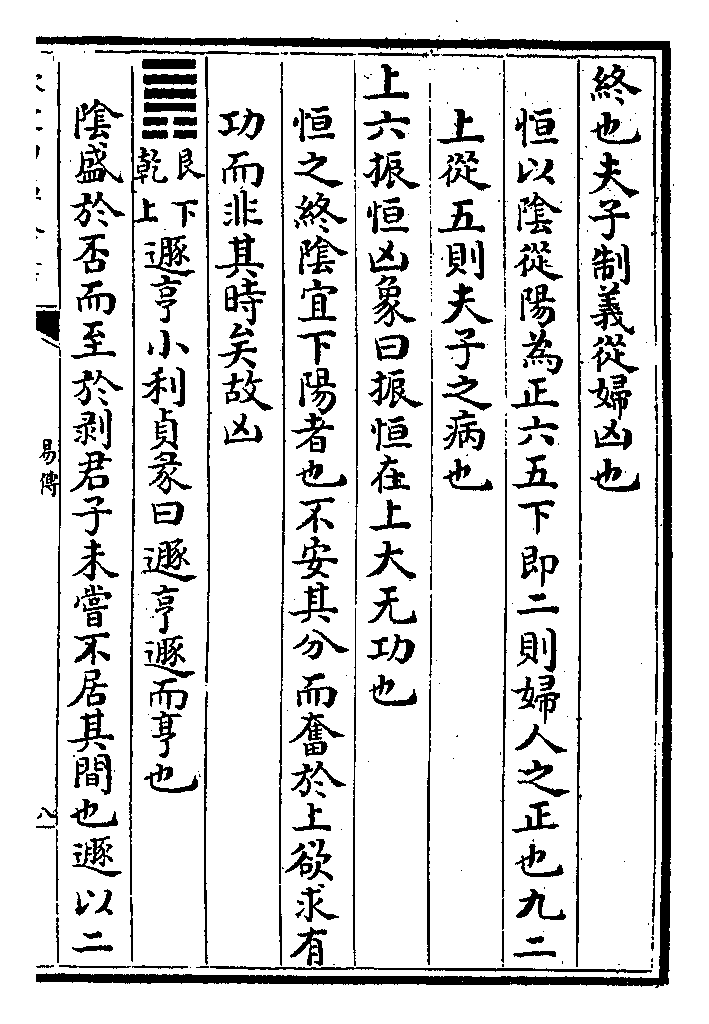 終也夫子制義從婦凶也
恒以陰從陽為正六五下即二則婦人之正也九二
上從五則夫子之病也
上六振恒凶象曰振恒在上大无功也
恒之終陰宜下陽者也不安其分而奮於上欲求有
功而非其時矣故凶
䷠艮下乾上遯亨小利貞彖曰遯亨遯而亨也
陰盛於否而至於剥君子未嘗不居其間也遯以二
易傳
八